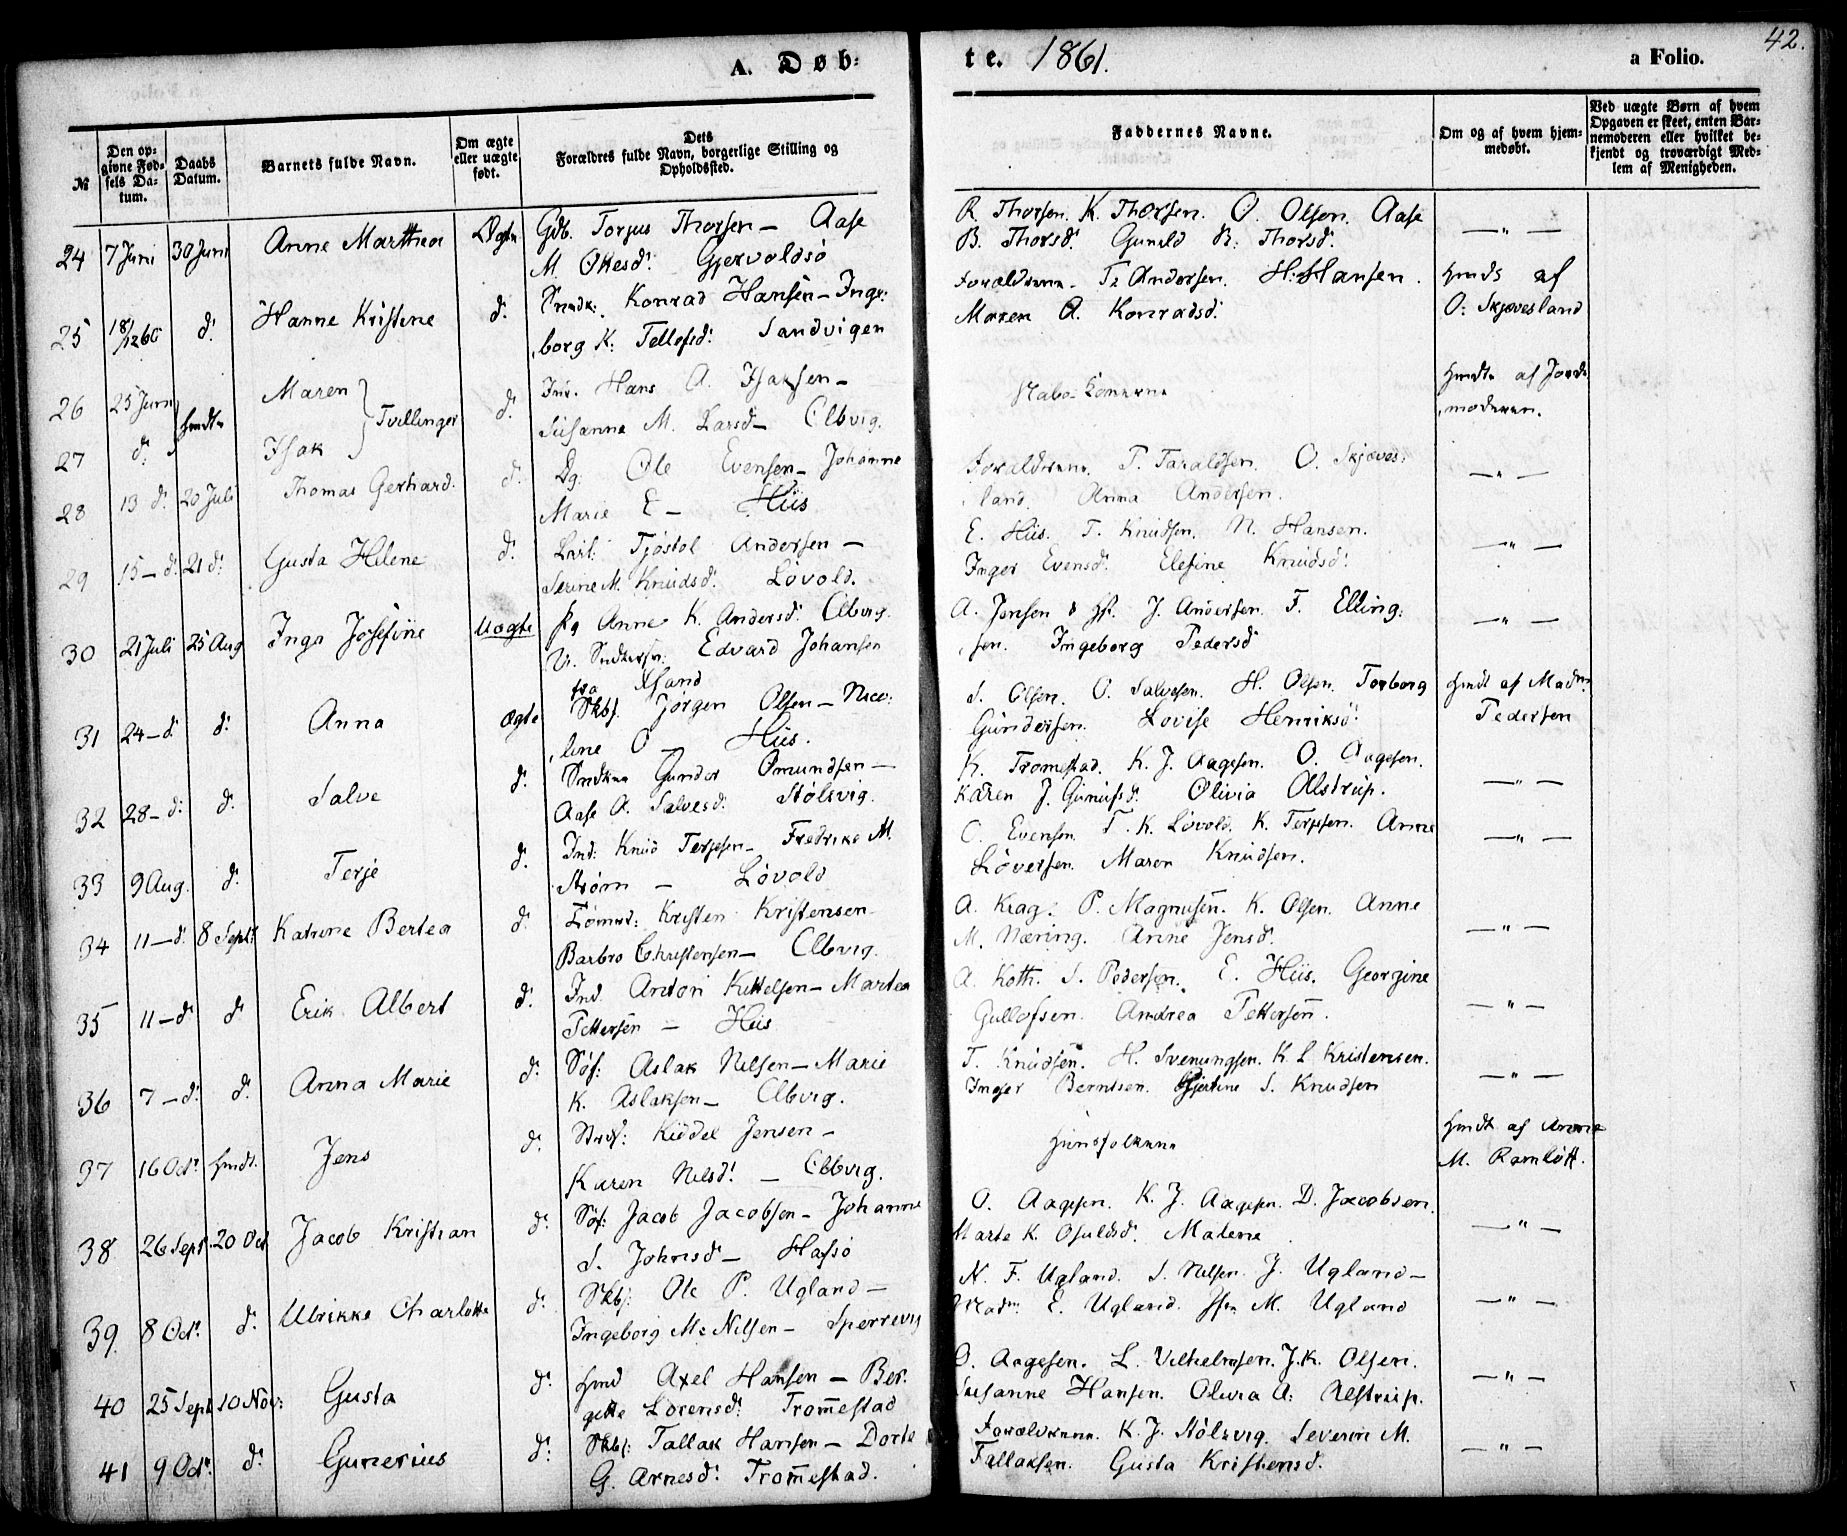 42.
A. Døb-
te. 1861.
a Folio.
№
Den op-
givne Fød-
sels Da-
tum.
Daabs
Datum.
Barnets fulde Navn.
Om ægte
eller uægte
født.
Dets
Forældres fulde Navn, borgerlige Stilling og
Opholdssted.
Faddernes Navne.
Om og af hvem hjem-
medøbt.
Ved uægte Børn af hvem
Opgaven er skeet, enten Bar-
nemoderen eller hvilket be-
kjendt og troværdigt Med-
lem af Menigheden.
24 7 Juni 30 Juni Anne Marthea Ægte Gdb. Torjus Thorsen — Aase
M. Okesd. Gjervoldsø
R. Thorsen. K. Thorsen. O. Olsen. Aase
B. Thorsd. Gunild R. Thorsd. — " —
25 18/12 60 d. Hanne Kristine d. Konrad Hansen — Inge-
borg K. Tellefsd. Sandvigen
Forældrene. T. Andersen. H. Hansen.
Maren A. Konradsd.
hmdb af
O. Skjævesland
26 25 Juni hmdt. Maren } Tvillinger d. Ind. Hans A. Isaksen —
27 d. Isak
Susanne M. Larsd — Elbvig.
Nabo Konerne
hmdt. af Jorde-
moderen.
28 13 d. 20 Juli Thomas Gerhard. d. Dg. Ole Evensen — Johanne
Marie E — Hiis
Forældrene. T. Taraldsen. O. Skjæves-
land. Anna Andersen. — " —
29 15 — d. 21 d. Gusta Helene d. Tjøstol Andersen —
Serine M. Knudsd. Løvold.
E. Hiis. T. Knudsen. N. Hansen.
Inger Evensd. Elefine Knudsd. — " —
30 21 Juli 25 Aug Inga Josefine Uægte Pg Anne K. Andersd. Elbvig.
U. Edvard Johansen
fra
A. Jensen & J. Andersen. F. Elling-
sen. Ingeborg Pedersd — " —
31 24 — d. d. Anna ægte Skbf. Jørgen Olsen — Nico-
line O — Hiis.
S. Olsen. O. Salvesen. H. Olsen. Torborg
Gundersen. Lovise Henriksd.
hmdt af Madm.
Pedersen
32 28 — d. d. Salve d. Gunder Omundsen —
Aase A. Salvesd. Stølsvig.
K. Tromestad. K. J. Aagesen. O. Aagesen.
Karen J. Olivia Alstrup. — " —
33 9 Aug. d. Terje d. Ind. Knud Terjesen — Fredrike M.
Strøm — Løvold
O. Evensen. T. K. Løvold. K. Terjesen. Anne
Løversen. Maren Knudsen. — " —
34 11 — d. 8 Sept. Katrine Bertea d. Tømmd. Kristen Kristensen
Barbro Christensen — Elbvig.
A. Krag. P. Magnusen. K. Olsen. Anne
M. Næring. Anne Jensd. — " —
35 11 — d. d. Erik Albert d. Ind. Anton Kittelsen — Martea
Pettersen — Hiis
A. Koth. S. Pedersen. E. Hiis. Georgine
Gullofsen. Andrea Pettersen. — " —
36 7 — d. d. Anna Marie d. Søf. Aslak Nilsen — Marie
K. Aslaksen — Elbvig.
T. Knudsen. H. Svenungsen. K. L. Kristensen.
Inger Berntsen. Gjertine S. Knudsen — " —
37 16 Oct. hmdt. Jens d. Kiddel Jensen —
Karen Nilsd. — Elbvig.
Huusfolkene
hmdt af Anne
M. Ramløtt.
38 26 Sept. 20 Oct Jacob Kristian d. Søf. Jacob Jacobsen — Johanne
S. Johnsd — Hafsø
O. Aagesen. K. J. Aagesen. D. Jacobsen.
Marte K. Osuldsd. Malene — " —
39. 8 Oct. d. Ulrikke Charlotte d. Skbf. Ole P. Ugland —
Ingeborg M. Nilsen — Sperrevig
N. F. Ugland. S. Nilsen. J. Ugland —
Madm. E. Ugland. M. Ugland — " —
40 25 Sept 10 Nov. Gusta d. hmd Axel Hansen — Ber-
gette Lorensd. Tromestad
O. Aagesen. L. Vilhelmsen. J. K. Olsen.
Susanne Hansen. Olivia A. Alstrup. — " —
41 9 Oct. d. Gunerius d. Skbf. Tallak Hansen — Dorte
G. Arnesd. Tromestad.
Forældrene. K. J. Stølsvig. Severin M.
Tallaksen. Gusta Kristensd. — " —